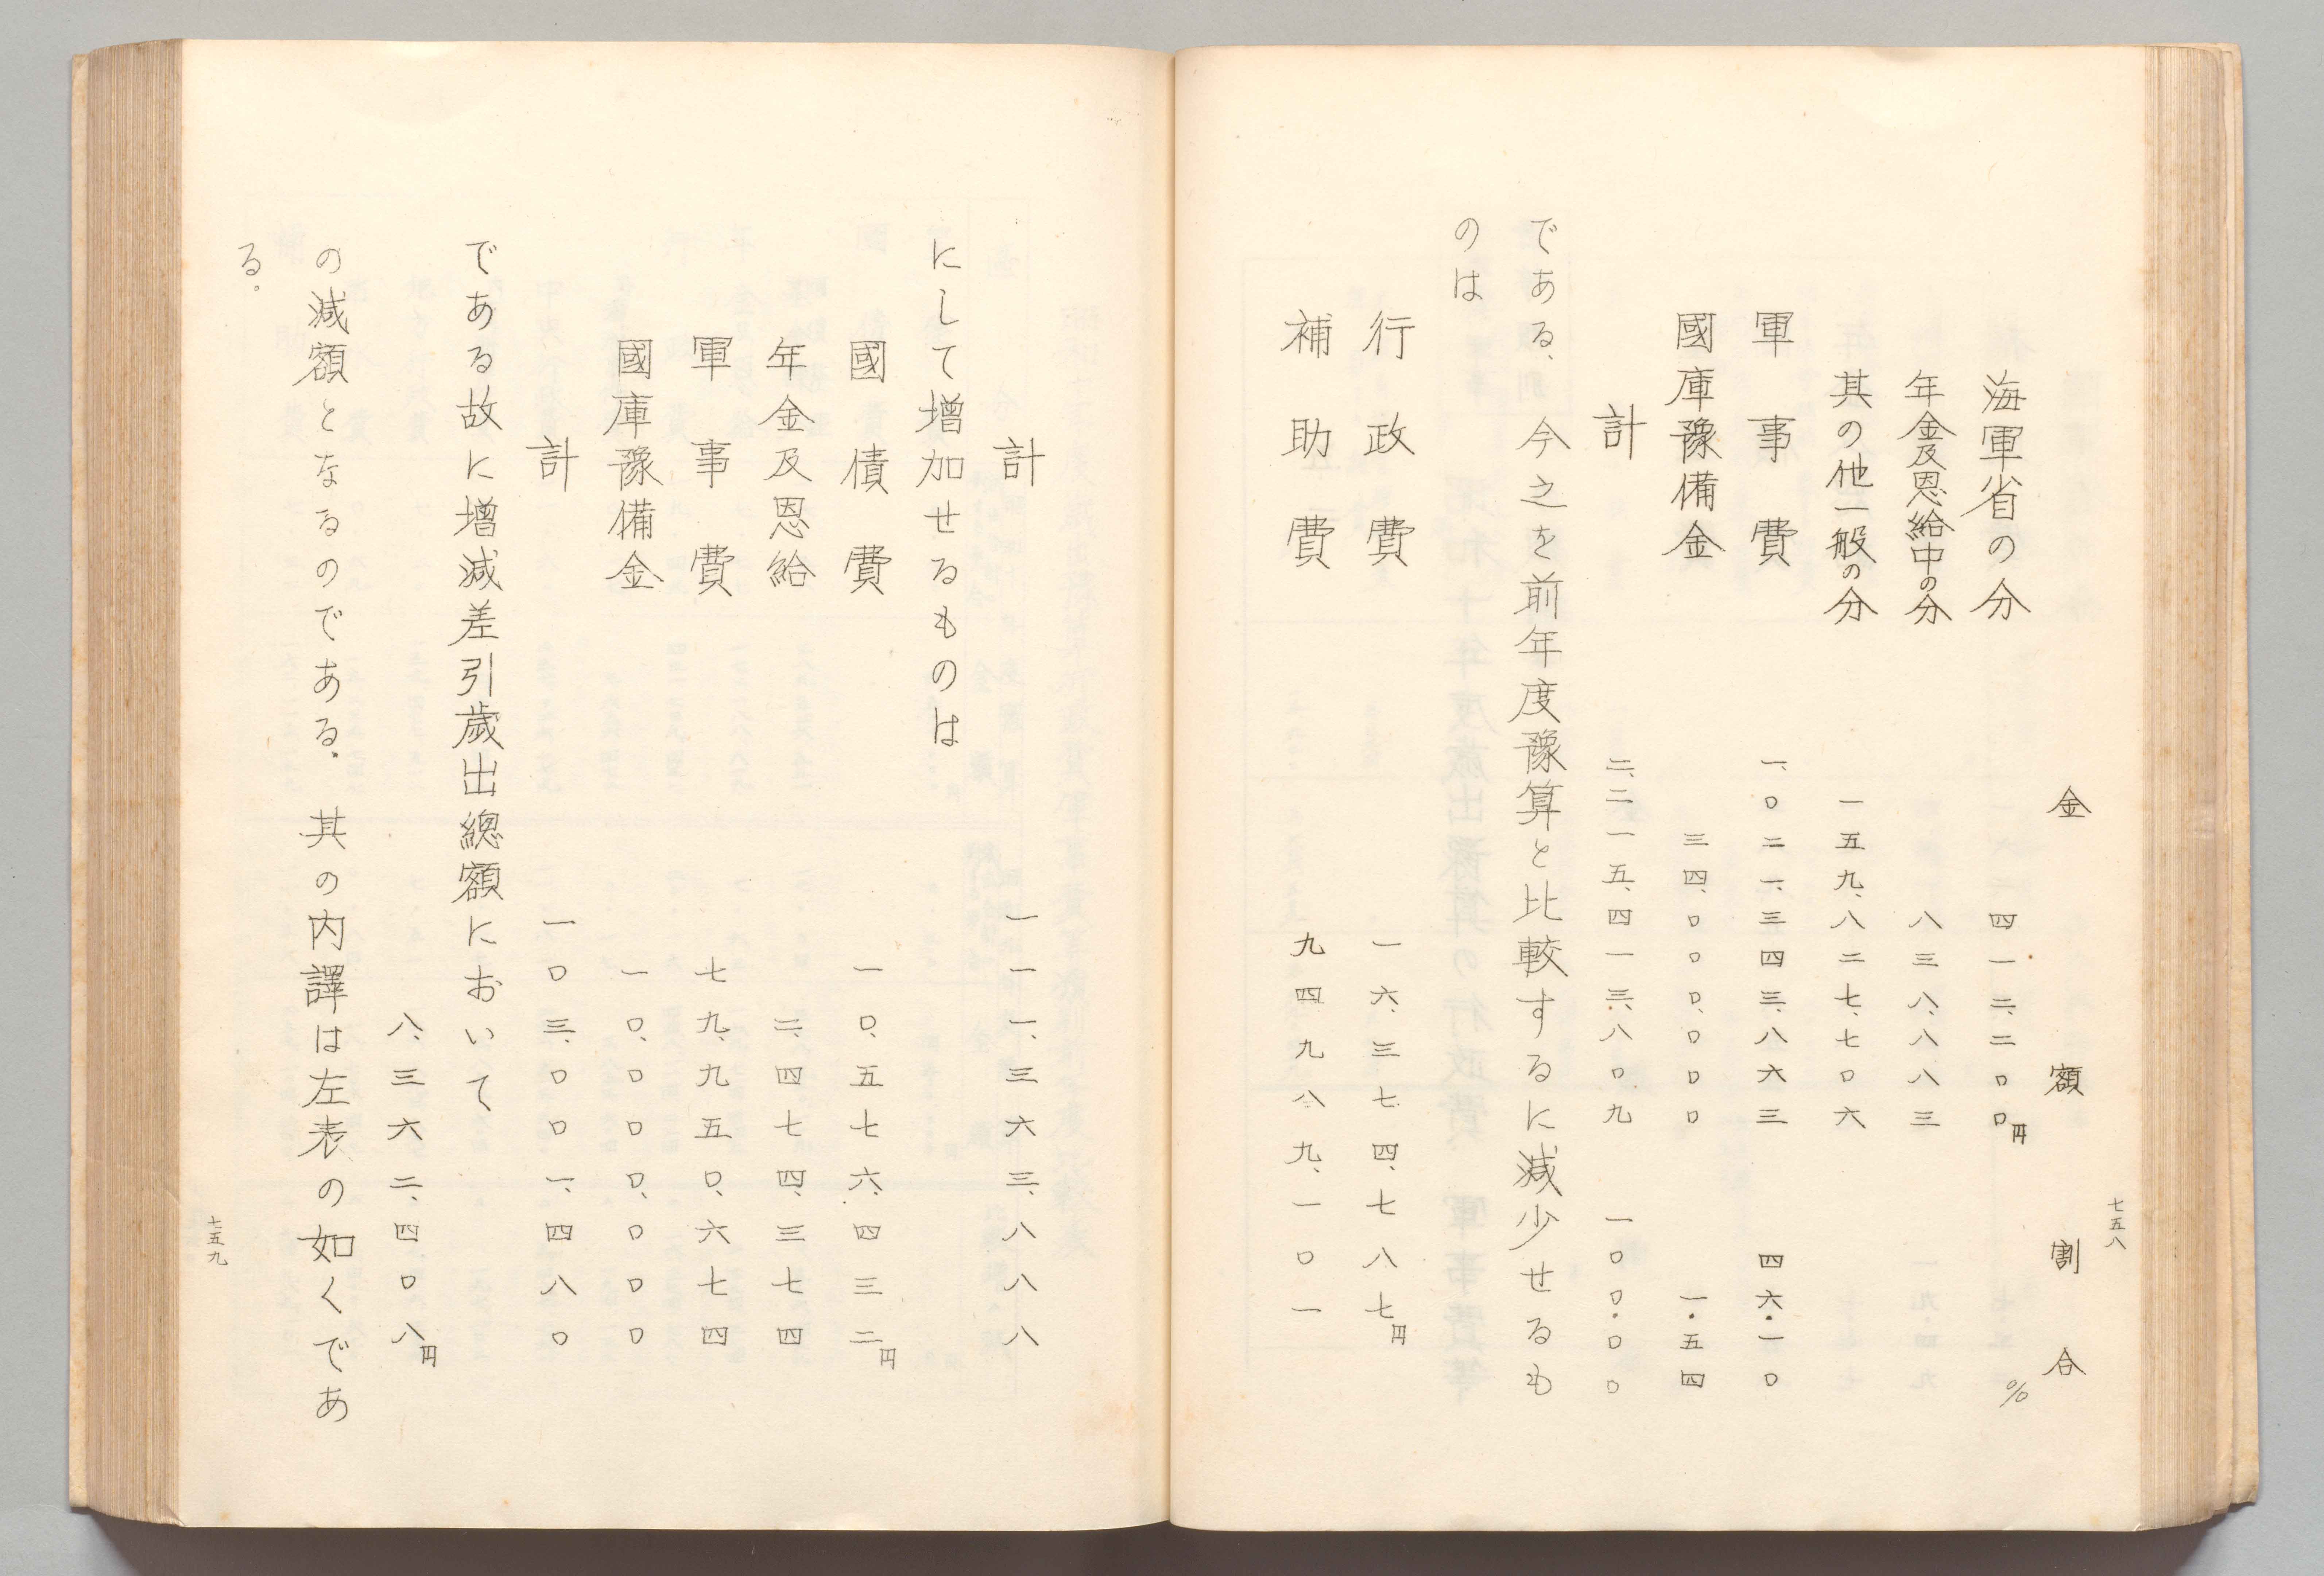 七五八
金額 割合
海軍省の分 四一二、二〇〇円 %
年金及恩給中の分 八三八、八八三
其の他一般の分 一五九、八二七、七〇六
軍事費 一、〇二一、三四三、八六三 四六・一〇
國庫豫備金 三四、〇〇〇、〇〇〇 一・五四
計 二、二一五、四一三、八〇九 一〇〇・〇〇
である、今之を前年度豫算と比較するに減少せるも
のは
行政費 一六、三七四、七八七円
補助費 九四九八九、一〇一
計 一一一、三六三、八八八
にして増加せるものは
國債費 一〇、五七六、四三二円
年金及恩給 二、四七四、三七四
軍事費 七九、九五〇、六七四
國庫豫備金 一〇、〇〇〇、〇〇〇
計 一〇三、〇〇一、四八〇
である故に増減差引歳出總額において
八、三六二、四〇八円
の減額となるのである。其の内譯は左表の如くであ
る。
七五九